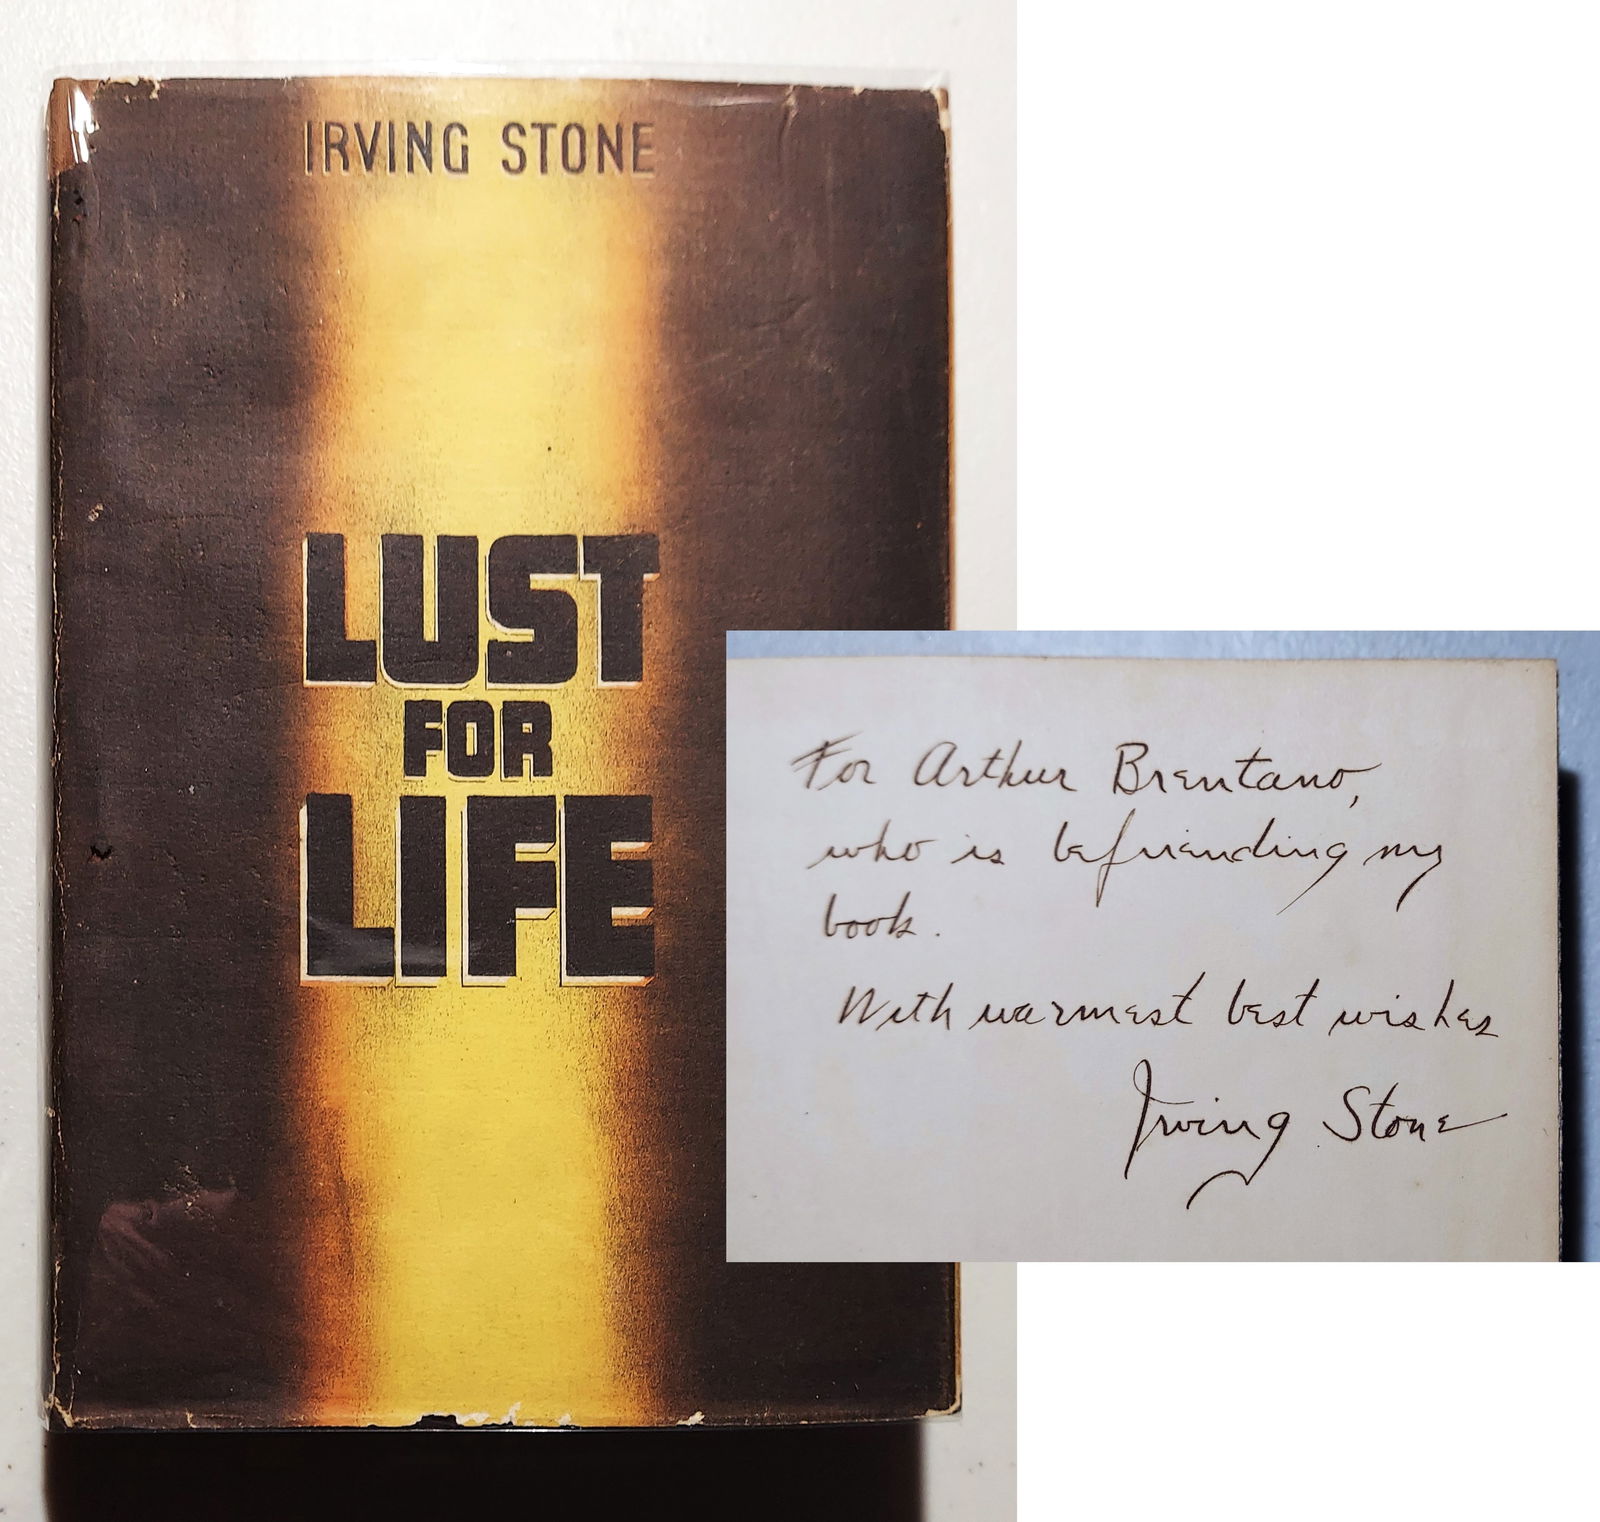 IRVING STONE
LUST
FOR
LIFE
For Arthur Brentano,
who is befriending my
book.
With warmest best wishes
Irving Stone